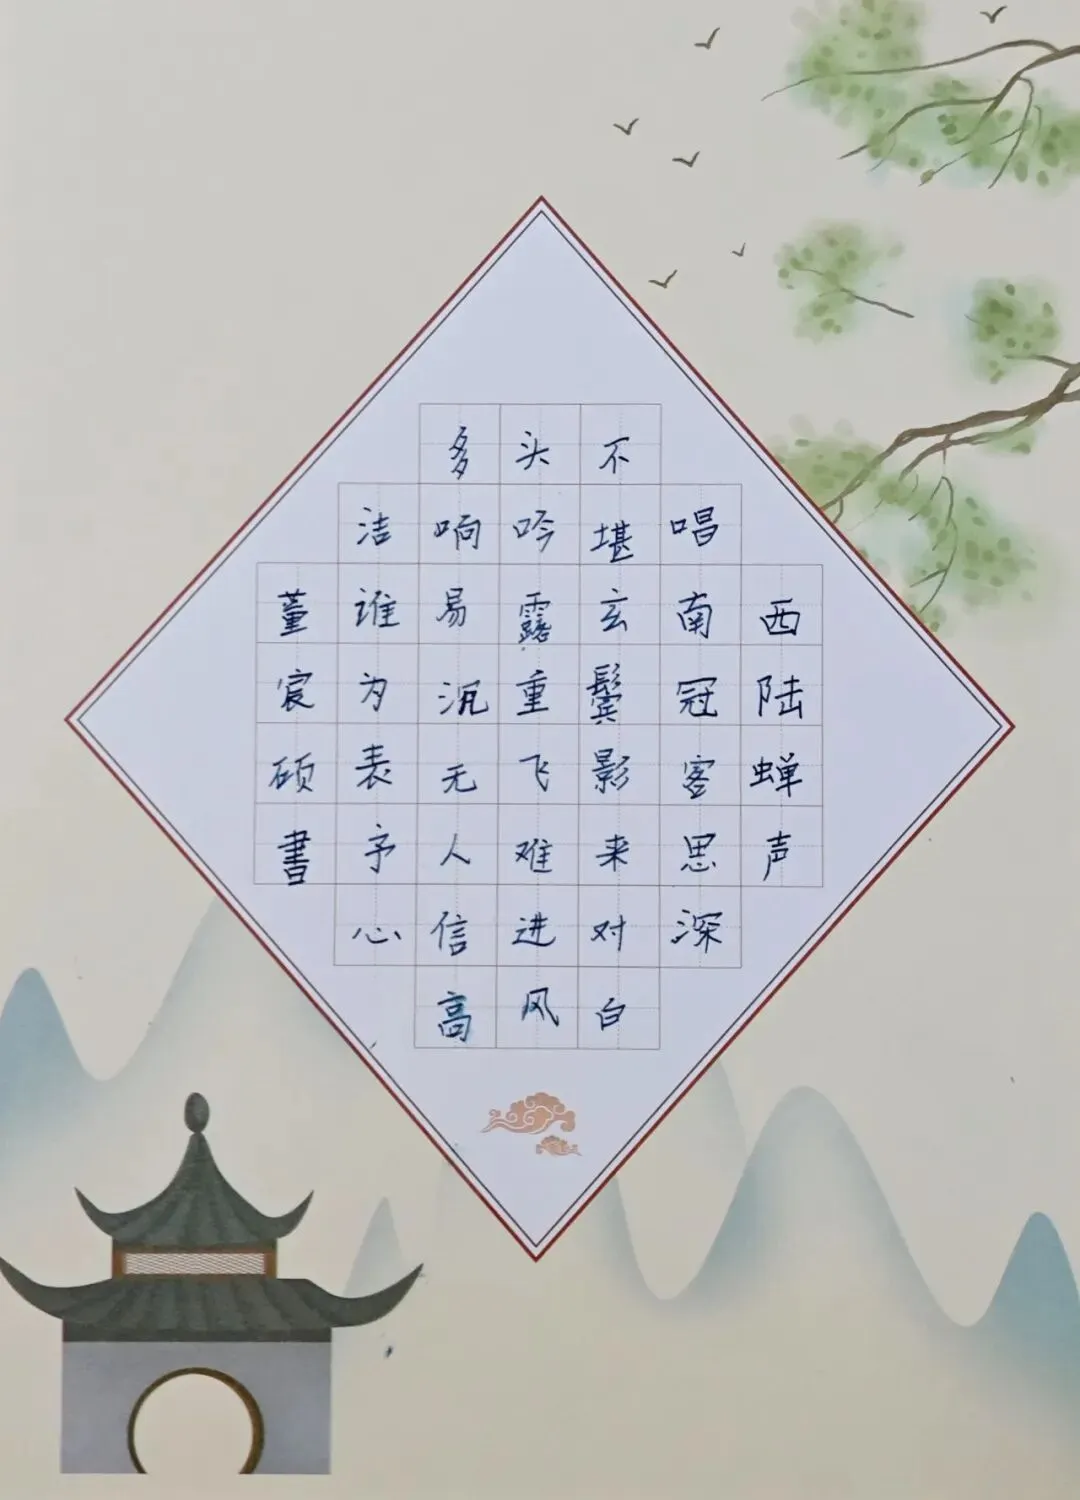 西陆蝉声
唱南冠客思深
不堪玄鬓影来对白
头吟露重飞难进风
多响易沉无人信高
洁谁为表予心
董宸硕書